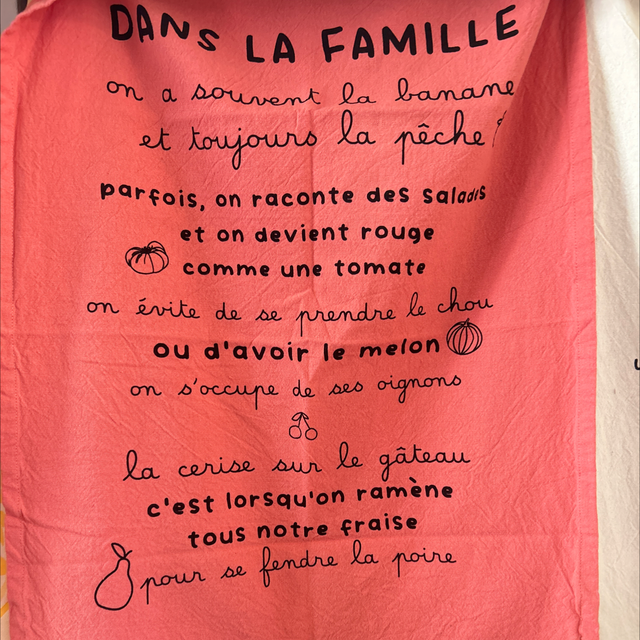 DANS LA FAMILLE
on a souvent la banane
et toujours la pêche
parfois, on raconte des salades
et on devient rouge
comme une tomate
on évite de se prendre le chou
ou d'avoir le melon
on s'occupe de ses oignons
la cerise sur le gâteau
c'est lorsqu'on ramène
tous notre fraise
pour se fendre la poire